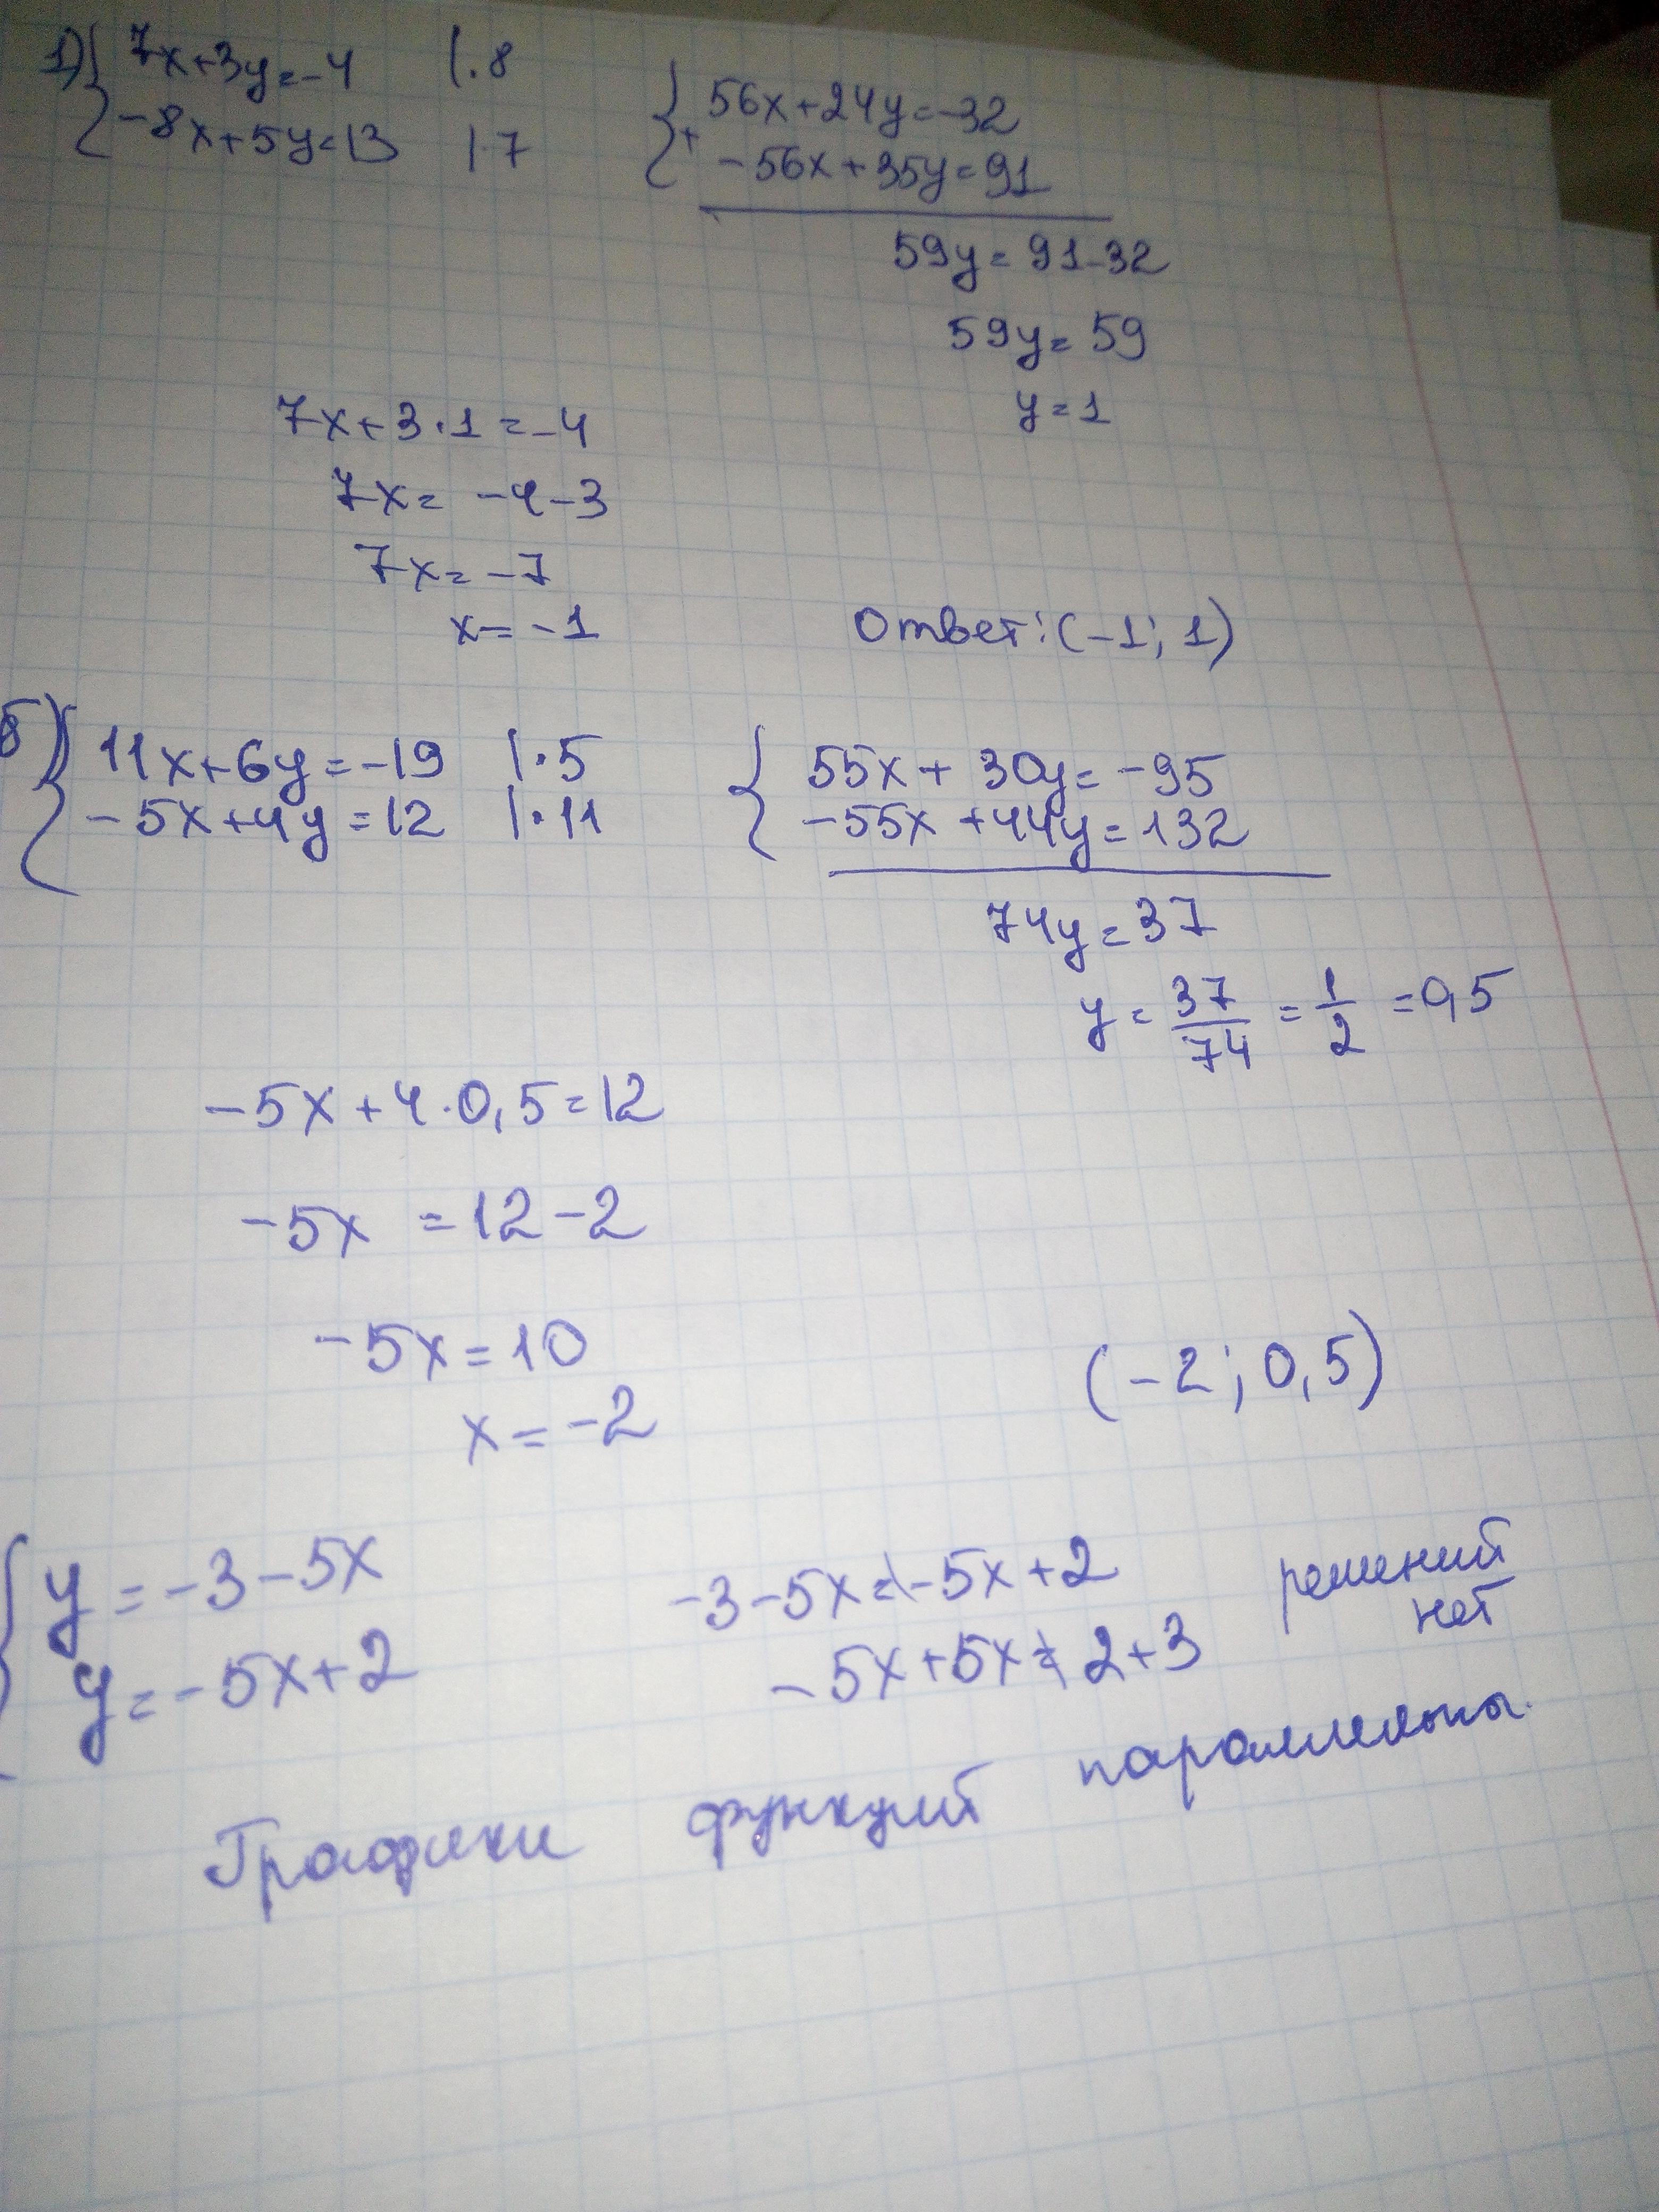 1) { 7x+3y=-4 | · 8
-8x+5y=13 | · 7
{ + 56x+24y=-32
-56x+35y=91
59y=91-32
59y=59
y=1
7x+3·1=-4
7x=-4-3
7x=-7
x=-1
Ответ: (-1; 1)
б) { 11x+6y=-19 | · 5
-5x+4y=12 | · 11
{ 55x+30y=-95
-55x+44y=132
74y=37
y=37/74=1/2=0,5
-5x+4·0,5=12
-5x=12-2
-5x=10
x=-2
(-2; 0,5)
{ y=-3-5x
y=-5x+2
-3-5x≠-5x+2
-5x+5x≠2+3
решений
нет
Графики функций параллельны.